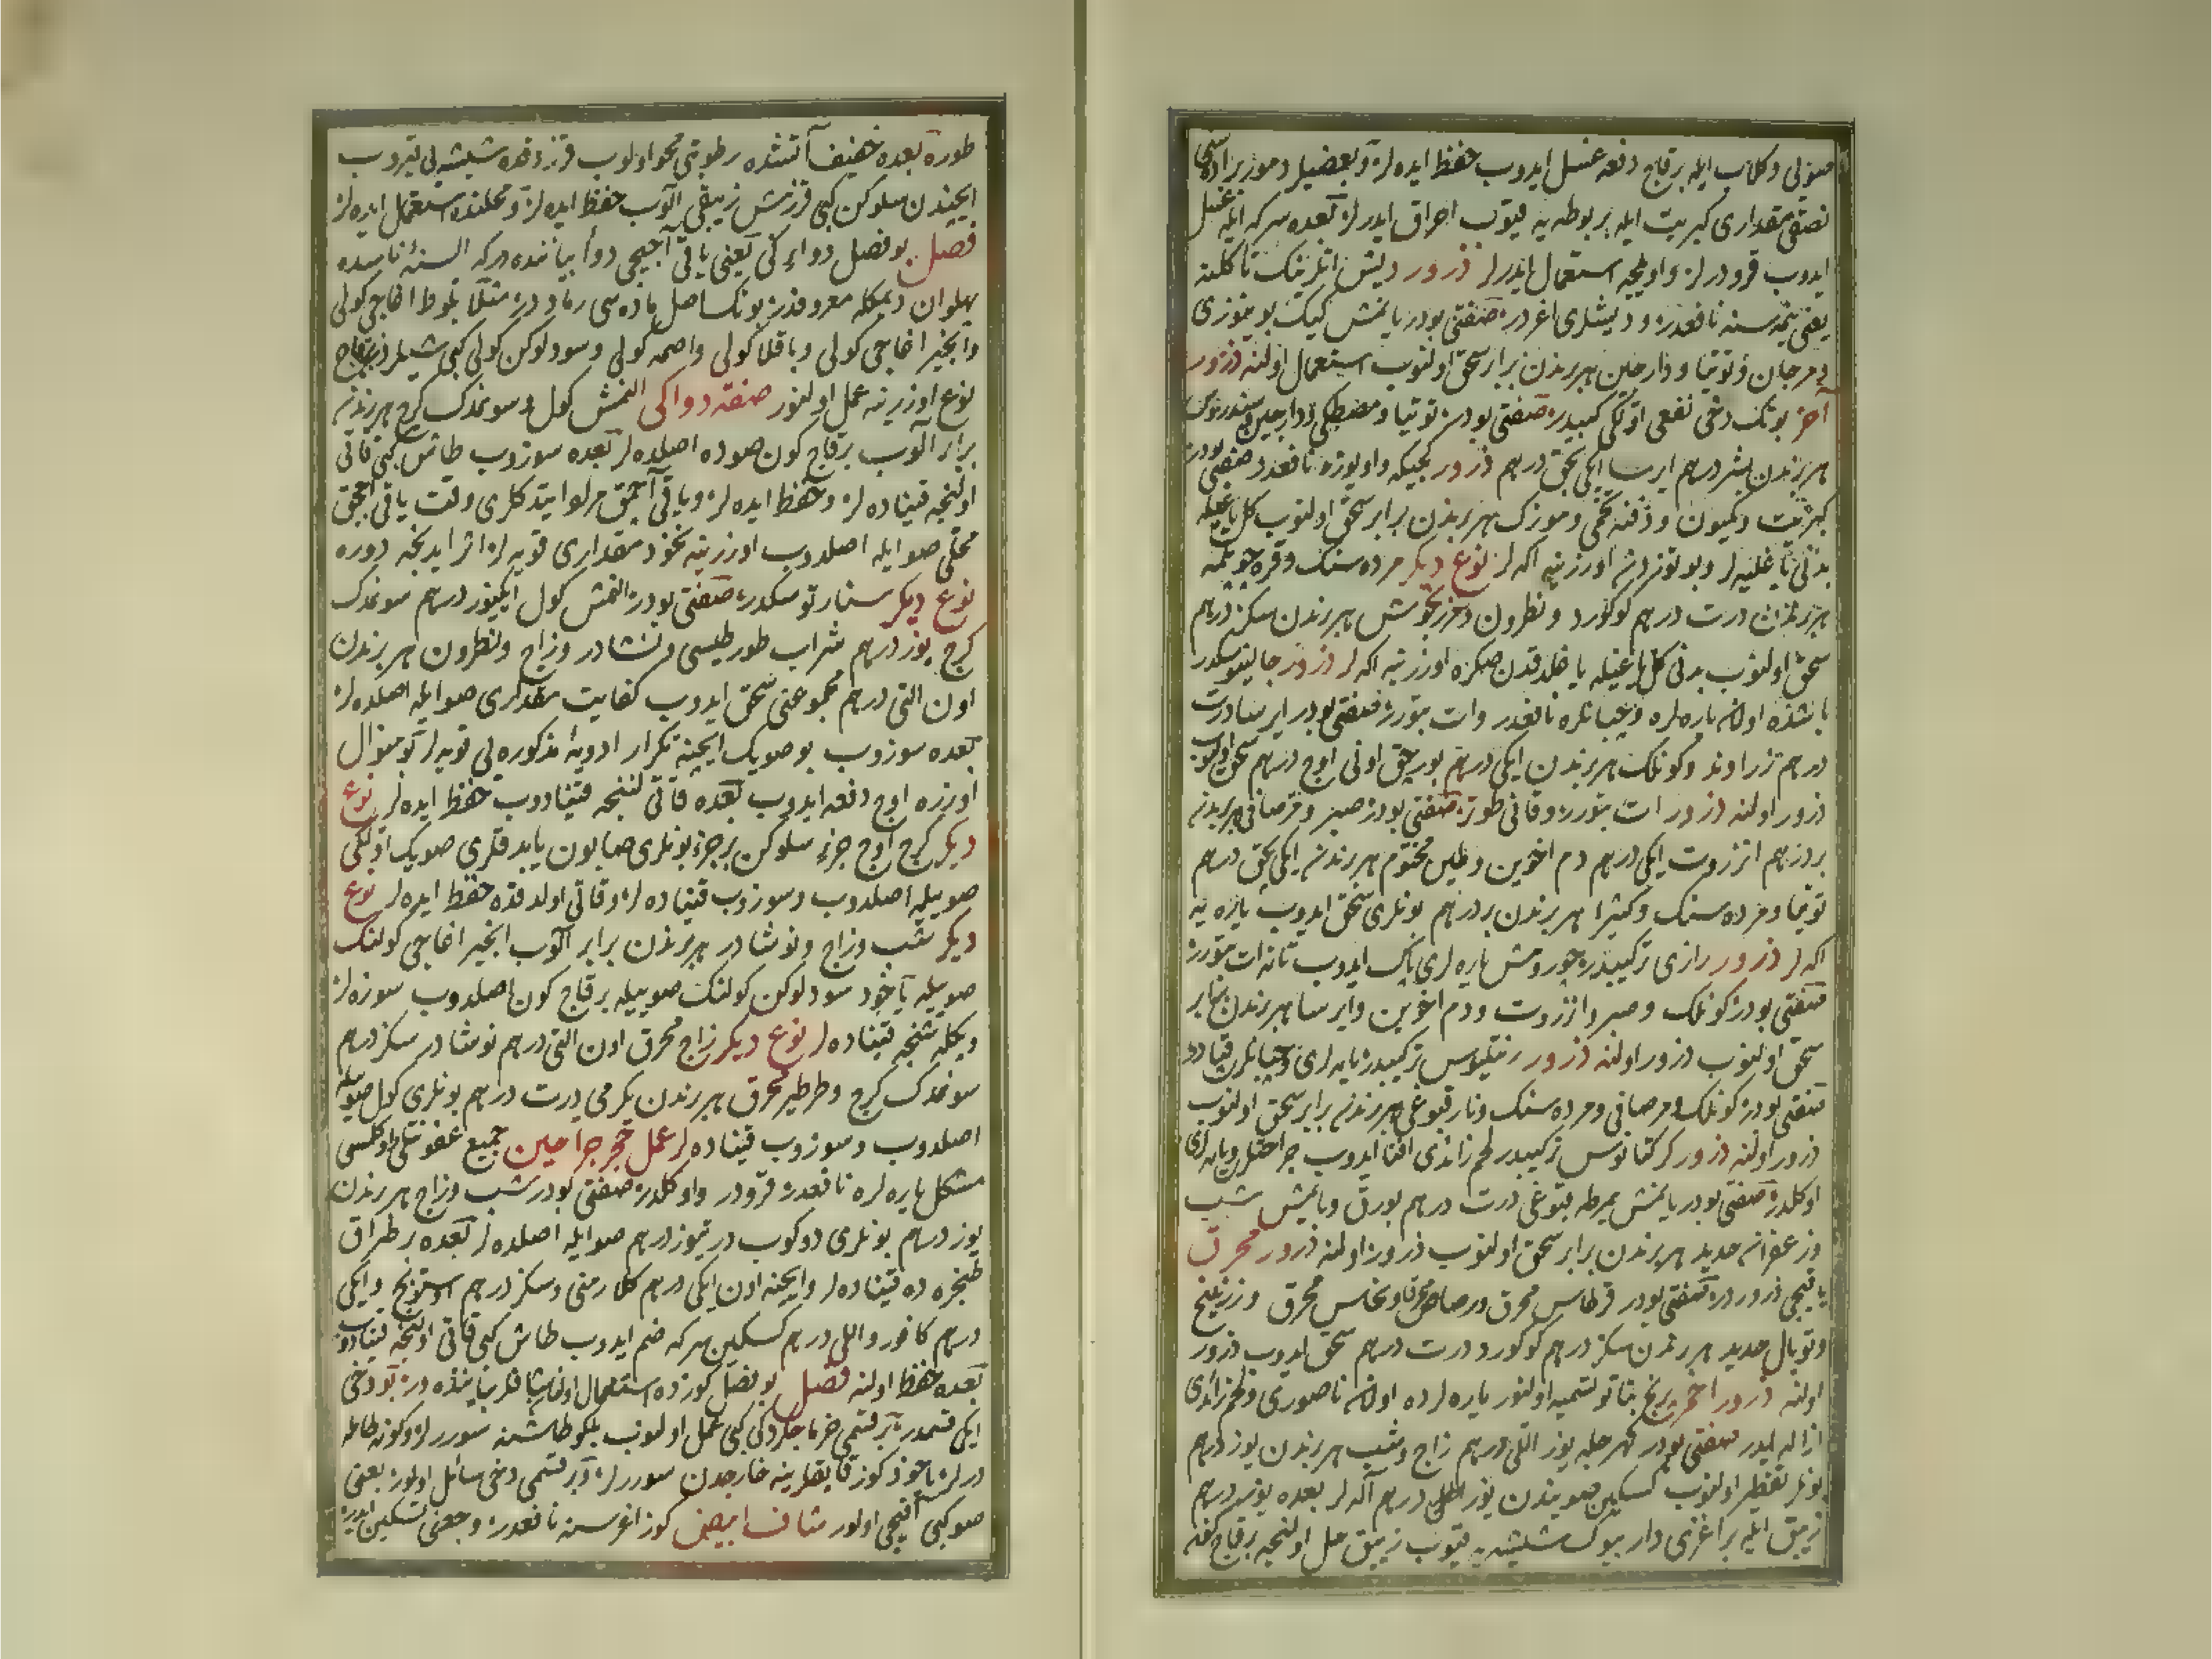 صویی و کلاب ایله برقاج دفعه غسل ایدوب حفظ ایده لر و بعضیلر دمور براده سی
نصفی مقداری کبریت ایله بر بوطه یه قیوب احراق ایدرلر بعده سرکه ایله غسل
ایدوب قرودرلر و اویله استعمال ایدرلر ذرور دیش اتلرینک تأکلنه
یعنی ینمه سنه نافعدر و دیشلری اغردر صفتی بودر یانمش کیک بوینوزی
و مرجان و توتیا و دارچین هر برندن برابر سحق اولنوب استعمال اولنه ذرور
آخر بونک دخی نفعی اولکی کبیدر صفتی بودر توتیا و مصطکی و دارچین و سندروس
هر برندن بشر درهم ایرسا ایکی بحق درهم ذرور کجیکه و اویوزه نافعدر صفتی بودر
کبریت و کمیون و دفنه تخمی و موزک هر برندن برابر سحق اولنوب کل یاغیله
بدنی یاغلیه لر و بو توزدن اوزرینه اکه لر نوع دیکر مرده سنک و قره چوپلمه
هر برندن درت درهم کوکورد و نطرون و مرزنجوش هر برندن سکز درهم
سحق اولنوب بدنی کل یاغیله یاغلدقدن صکره اوزرینه اکه لر ذرور جالینوسکدر
باشده اولان یاره لره و چبانلره نافعدر و ات بتورر صفتی بودر ایرسا درت
درهم زراوند و کونلک هر برندن ایکی درهم بورچق اونی اوچ درهم سحق اولنوب
ذرور اولنه ذرور ات بتورر و قانی طوتر صفتی بودر صبر و مرصافی هر برندن
بر درهم انزروت ایکی درهم دم اخوین و طین مختوم هر برندن ایکی بحق درهم
توتیا و مرده سنک و کثیرا هر برندن بر درهم بونلری سحق ایدوب یاره یه
اکه لر ذرور رازی ترکیبیدر چورومش یاره لری پاک ایدوب تازه ات بتورر
صفتی بودر کونلک و صبر و انزروت و دم اخوین و ایرسا هر برندن برابر
سحق اولنوب ذرور اولنه ذرور ترکیبیدر یاره لری و چبانلری
صفتی بودر کونلک و مرصافی و مرده سنک و نار قبوغی هر برندن برابر سحق اولنوب
ذرور اولنه ذرور ترکیبیدر لحم زائدی افنا ایدوب جراحتلری و یاره لری
اوکلدر صفتی بودر یانمش یمرطه قبوغی درت درهم بورق و یانمش شب
و زعفران حدید هر برندن برابر سحق اولنوب ذرور اولنه ذرور محرق
یاقیجی ذروردر صفتی بودر قرطاس محرق و رصاص محرق و نحاس محرق و زرنیخ
و توبال حدید هر برندن سکز درهم کوکورد درت درهم سحق ایدوب ذرور
اولنه ذرور احمر تسمیه اولنور یاره لرده اولان ناصوری و لحم زائدی
ازاله ایدر صفتی بودر کهرجله یوز اللی درهم زاج و شب هر برندن یوز درهم
بونلر تقطیر اولنوب کسکین صویندن یوز اللی درهم آله لر بعده یوز درهم
زیبق ایله بر اغزی دار بیوک شیشه یه قیوب زیبق حل اولنجه برقاج کون
طوره بعده خفیف آتشده رطوبتی محو اولوب قزردقده شیشه یی قیروب
ایچندن سلوکن کبی قزرمش زیبقی آلوب حفظ ایده لر و محلنده استعمال ایده لر
فصل بو فصل دواء کی یعنی یاقی آجیجی دوا بیاننده در که السنهٔ ناسده
پهلوان دیمکله معروفدر بونک اصل ماده سی رماددر مثلا بلوط اغاجی کولی
و انجیر اغاجی کولی و باقلا کولی و اصمه کولی و سودلوکن کولی کبی شیلردر برقاج
نوع اوزرینه عمل اولنور صفة دواکی النمش کول و سونمدک کرج هر برندن
برابر آلوب برقاج کون صوده اصلده لر بعده سوزوب طاش کبی قاتی
اولنجه قیناده لر و حفظ ایده لر و یاقی آچمق مراد ایتدکلری وقت یاقی آچجق
محلی صو ایله اصلدوب اوزرینه نخود مقداری قویه لر اثر ایدنجه دوره
نوع دیکر صفتی بودر النمش کول ایکیوز درهم سونمدک
کرج یوز درهم شراب طورطیسی و نشادر و زاج و نطرون هر برندن
اون التی درهم مجموعنی سحق ایدوب کفایت مقداری صو ایله اصلده لر
بعده سوزوب بو صویک ایچینه تکرار ادویهٔ مذکوره یی قویه لر بو منوال
اوزره اوچ دفعه ایدوب بعده قاتی لنجه قینادوب حفظ ایده لر نوع
دیکر کرج اوچ جزء سلوکن بر جزء بونلری صابون یابدقلری صویک اولکی
صوییله اصلدوب و سوزوب قیناده لر و قاتی اولدقده حفظ ایده لر نوع
دیکر شب و زاج و نوشادر هر برندن برابر آلوب انجیر اغاجی کولنک
صوییله یاخود سودلوکن کولنک صوییله برقاج کون اصلدوب سوزه لر
و پکلشنجه قیناده لر نوع دیکر زاج محرق اون التی درهم نوشادر سکز درهم
سونمدک کرج و طرطیر محرق هر برندن یکرمی درت درهم بونلری کول صوییله
اصلدوب و سوزوب قیناده لر عمل حجر جراحین جمیع عفونتلی و اوکلمسی
مشکل یاره لره نافعدر قرودر و اوکلدر صفتی بودر شب و زاج هر برندن
یوز درهم بونلری دوکوب درتیوز درهم صو ایله اصلده لر بعده بر طپراق
طنجره ده قیناده لر و ایچنه اون ایکی درهم کل ارمنی و سکز درهم استوبج و ایکی
درهم کافور و اللی درهم کسکین سرکه ضم ایدوب طاش کبی قاتی اولنجه قینادوب
بعده حفظ اولنه فصل بو فصل کوزده استعمال اولنان شیافلر بیاننده در بو دخی
ایکی قسمدر بر قسمی خرما چکردکی کبی عمل اولنوب بلکو طاشنه سوررلر و کوزه طامله
درلر یاخود کوز قپاقلرینه خارجدن سوررلر و بر قسمی دخی سائل اولور یعنی
صو کبی آقیجی اولور شیاف ابیض کوز اغرسنه نافعدر و وجعنی تسکین ایدر